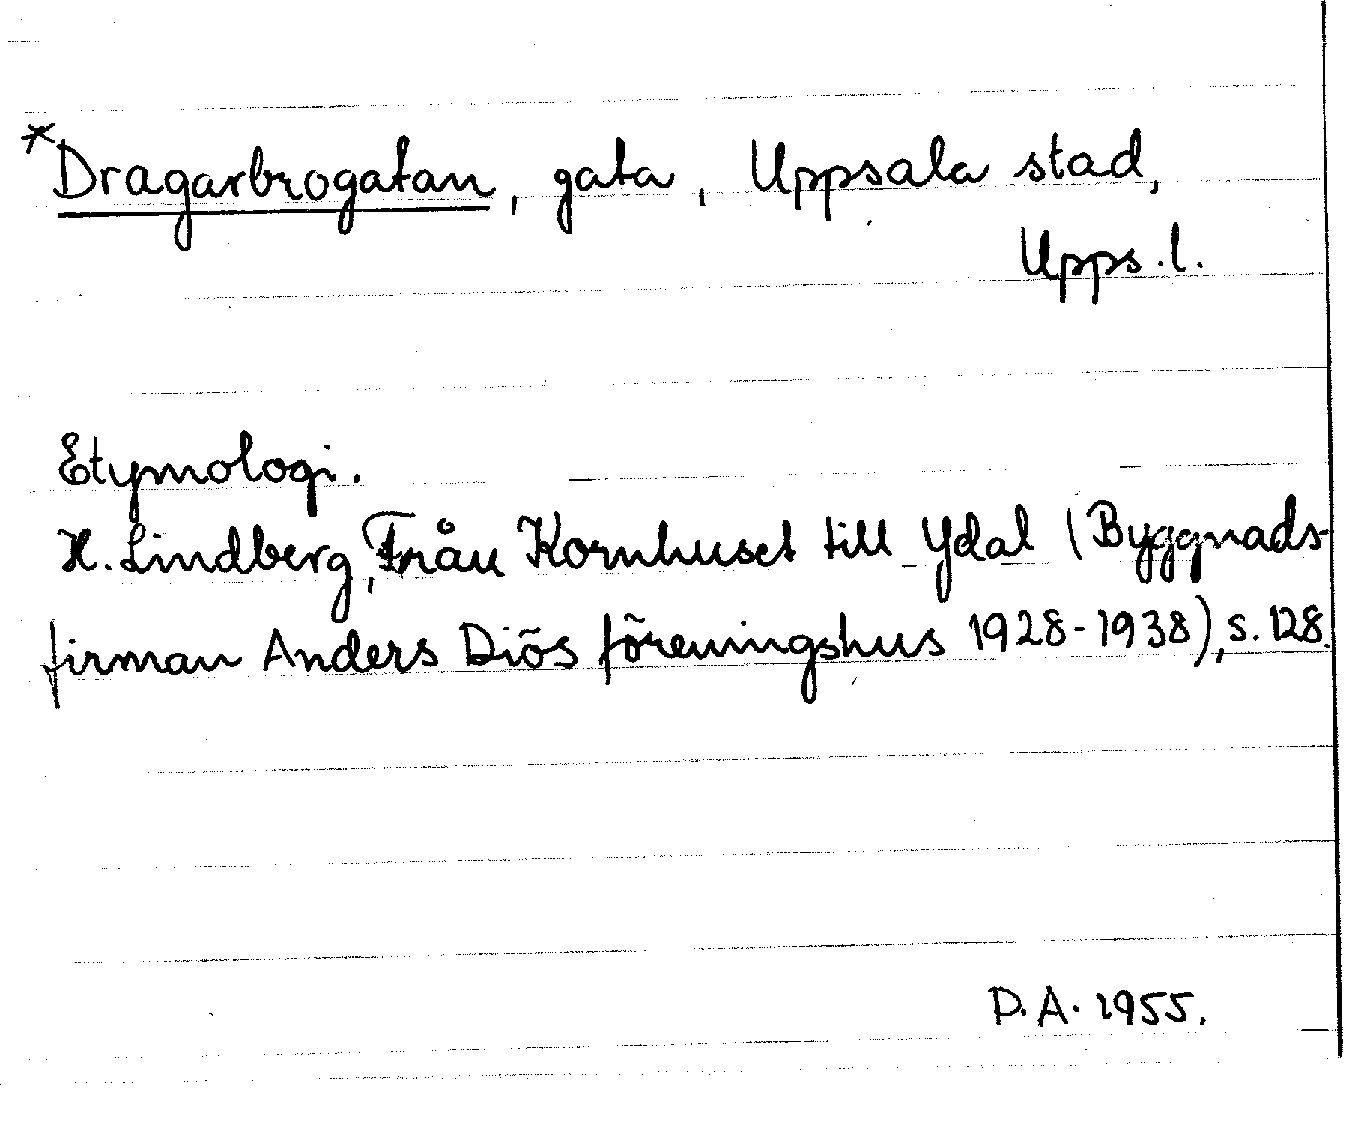 *Dragarbrogatan, gata, Uppsala stad,
Upps.l.
Etymologi.
H. Lindberg, Från Kornhuset till Ydal (Byggnads-
firman Anders Diös föreningshus 1928-1938), s. 128.
D.A. 1955.